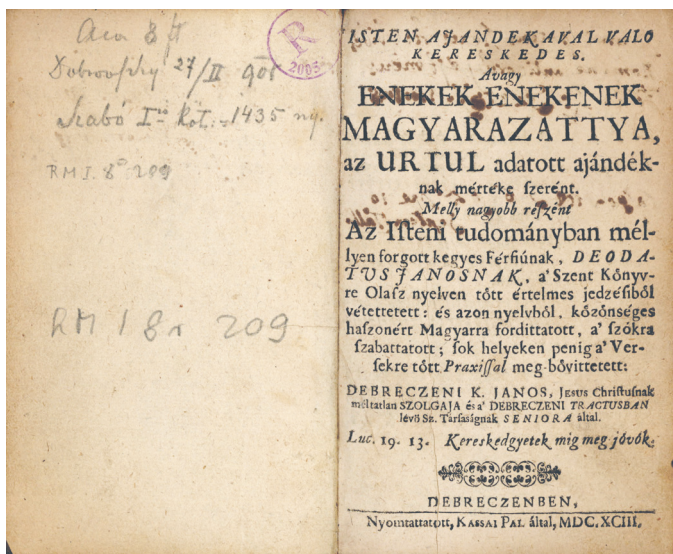 Aca 8 ft
Dobrovszky 27/II 901
Szabó I. Köt. 1435 ny.
RMI. 8° 209
RM I 8r 209
R
2005
ISTEN AJANDEKAVAL VALO
KERESKEDES.
Avagy
ENEKEK ENEKENEK
MAGYARAZATTYA,
az URTUL adatott ajándék-
nak mértéke szerént.
Melly nagyobb részént
Az Isteni tudományban mél-
lyen forgott kegyes Férfiúnak, DEODA-
TUS JANOSNAK, a' Szent Kőnyv-
re Olasz nyelven tőtt értelmes jedzésiből
vétettetett: és azon nyelvből, kőzőnséges
haszonért Magyarra fordittatott, a' szókra
szabattatott; sok helyeken penig a' Ver-
sekre tőtt Praxissal meg-bővittetett:
DEBRECZENI K. JANOS, Jesus Christusnak
méltatlan SZOLGAJA és a' DEBRECZENI TRACTUSBAN
lévő Sz. Társaságnak SENIORA által.
Luc. 19. 13. Kereskedgyetek mig meg jövök.
DEBRECZENBEN,
Nyomtattatott, KASSAI PAL által, MDC.XCIII.